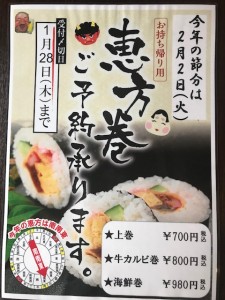 今年の節分は
2月2日(火)
お持ち帰り用
恵方巻
ご予約承ります。
受付〆切日
1月28日(木)まで
今年の恵方は南南東
★上巻 ¥700円 税込
★牛カルビ巻 ¥800円 税込
★海鮮巻 ¥980円 税込